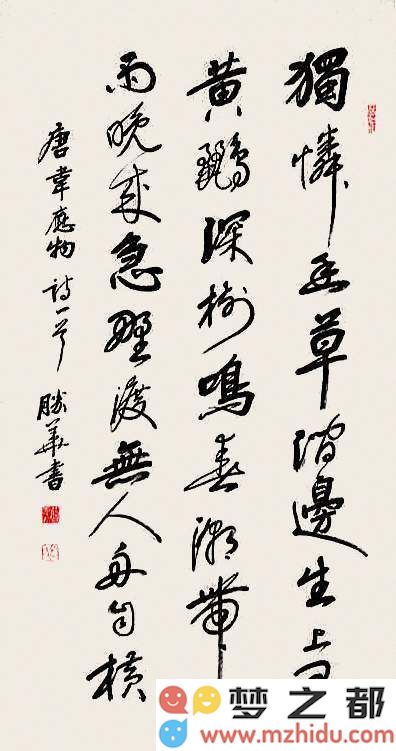 獨憐幽草澗邊生上有
黄鸝深樹鳴春潮帶
雨晚來急野渡無人舟自橫
唐韋應物詩一首 勝華書
梦之都
www.mzhidu.com